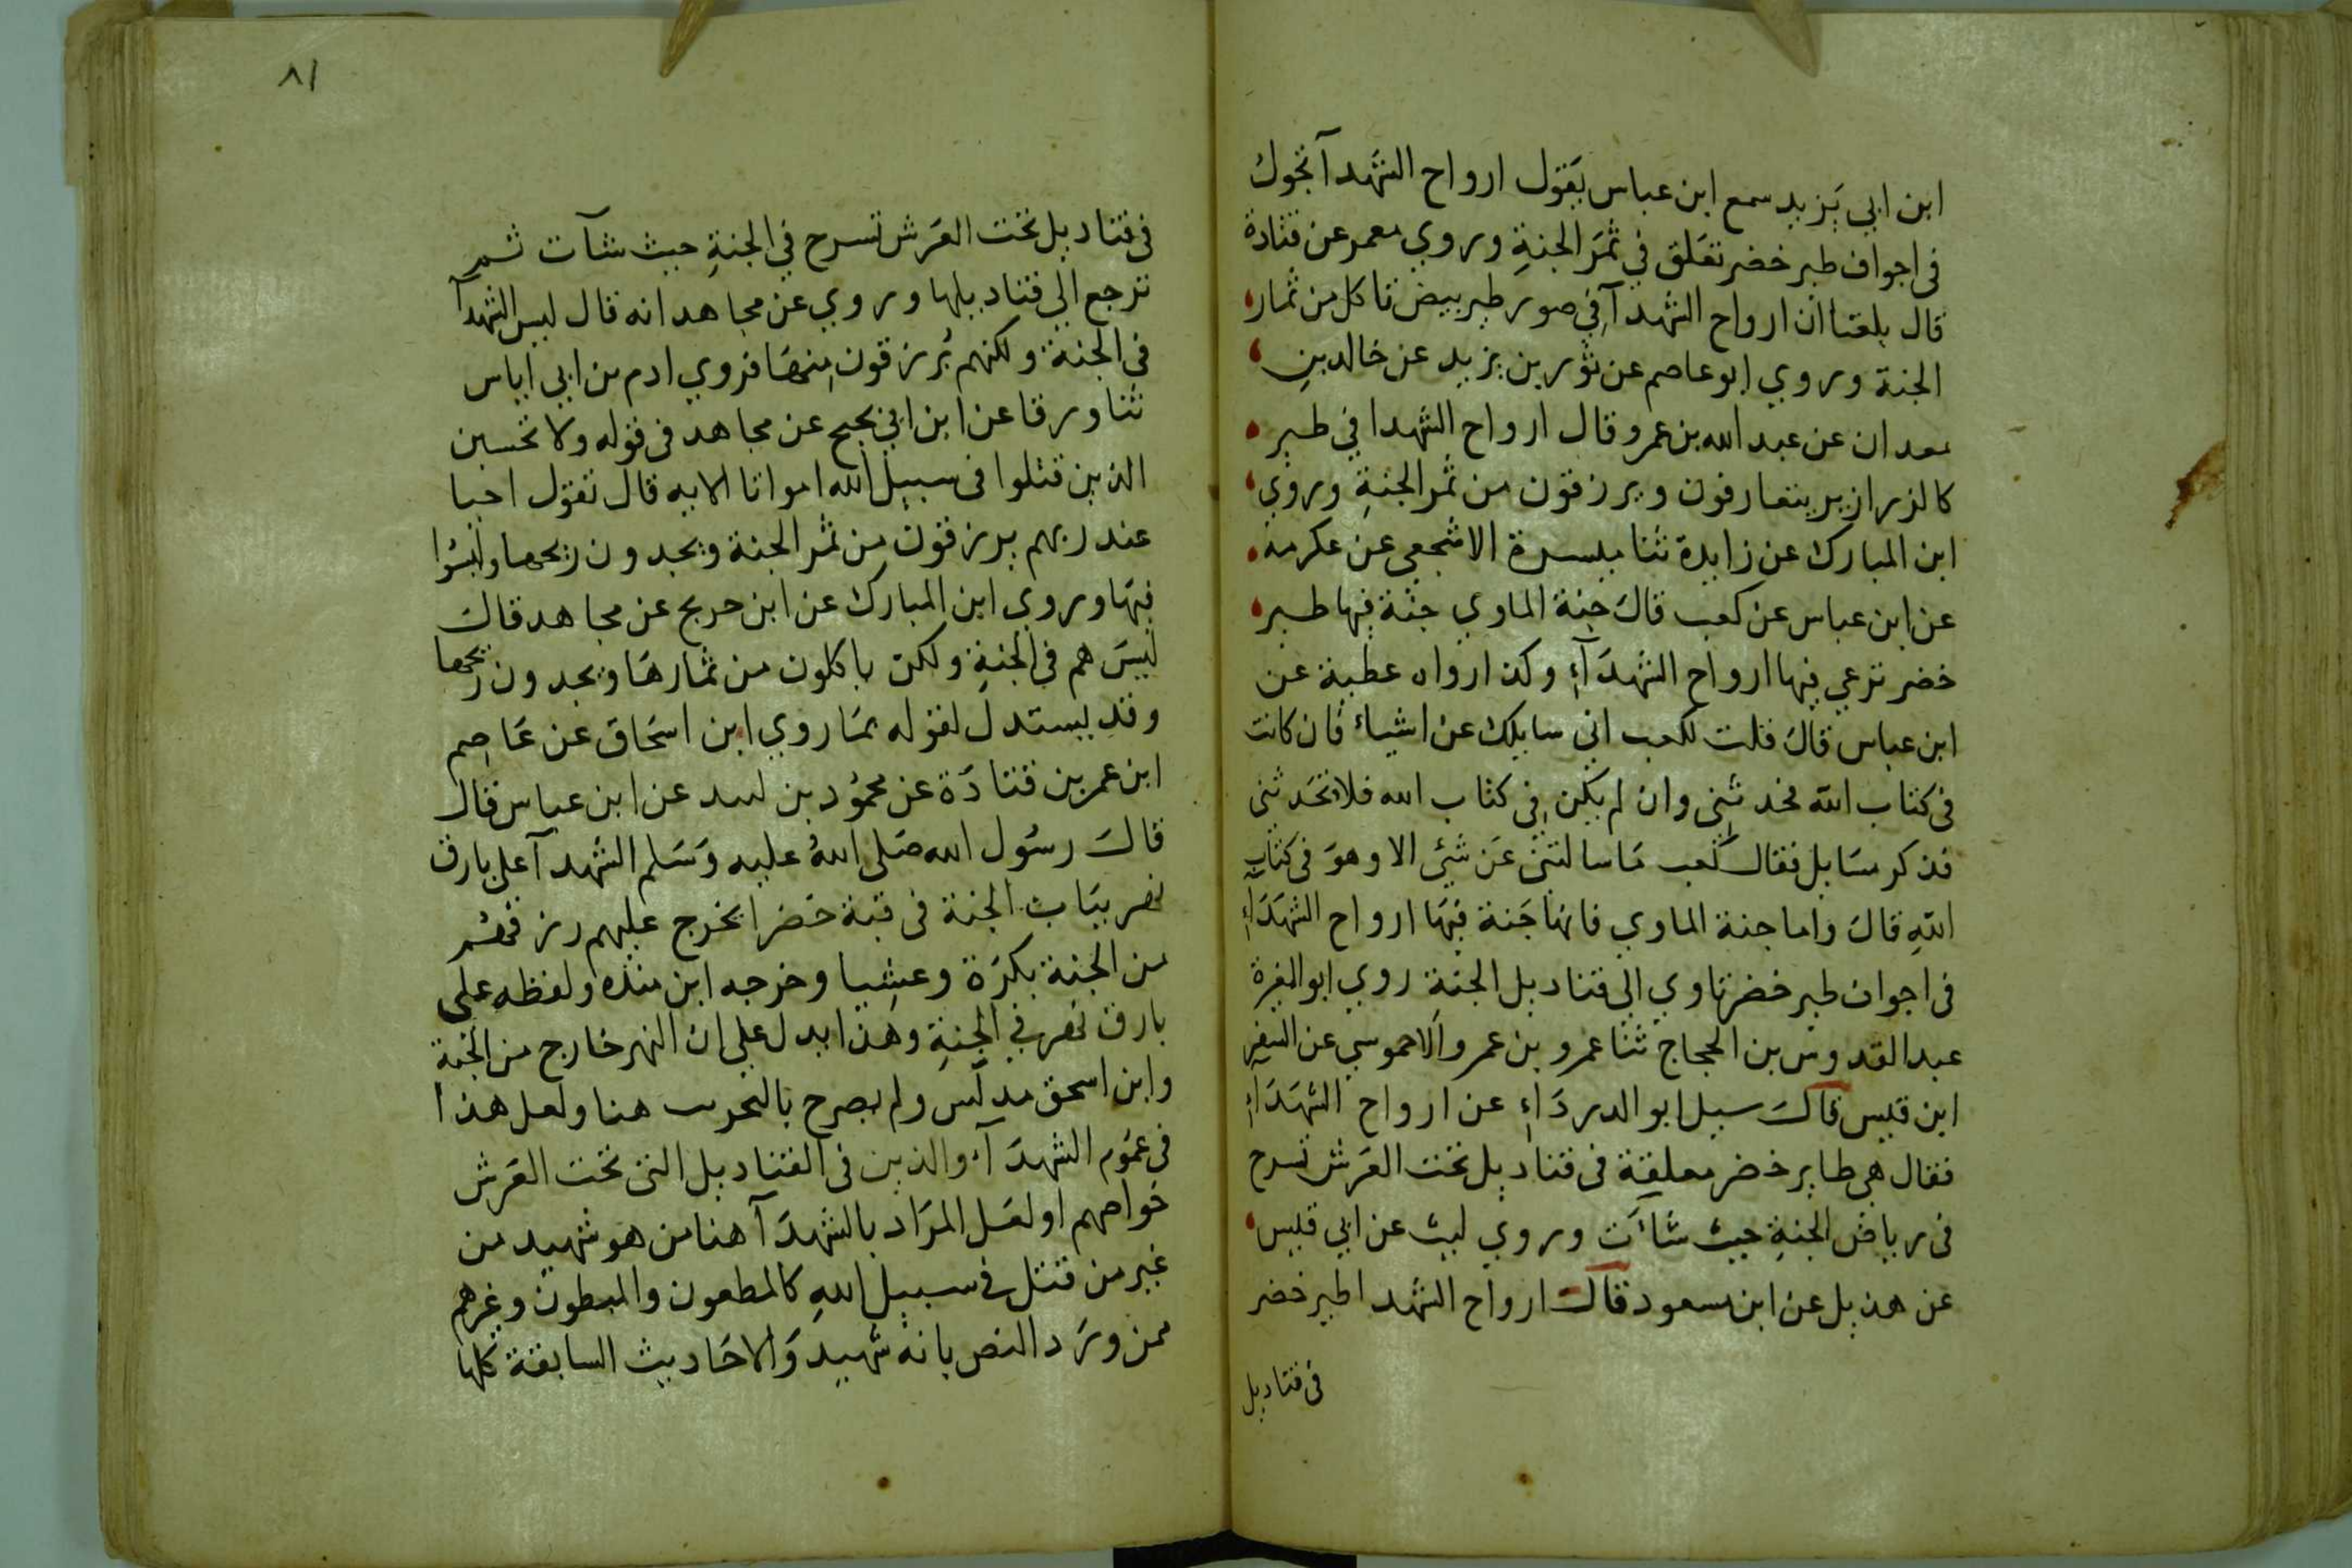 ابن ابي يَزيد سمع ابن عباس يَقول ارواح الشهدآ تجول
فى اجواف طير خضر تعَلق في ثمَر الجنةِ وروي معمر عن قتادة
قال بلغنا ان ارواح الشهدآ في صور طير بيض تاكل من ثمار
الجنة وروي ابو عاصم عن ثور بن يزيد عن خالد بنِ
معدان عن عبد الله بن عمرو قال ارواح الشهدا في طير
كالزرازير يتعارفون ويرزقون من ثمر الجنةِ وروي
ابن المبارك عن زايدة ثنا ميسرة الاشجعي عن عكرمة
عن ابن عباس عن كعب قالَ جنة الماوي جنة فيها طير
خضر ترعي فيها ارواح الشهدَآءِ وكذا رواه عطية عن
ابن عباس قالَ قلت لكعب اني سايلك عن اشياء فان كانت
فى كتاب اللّه فحدثني وان لم يكن في كتاب الله فلا تحَدثنى
فذكر مسَايل فقال كعب مَا سالتنى عَن شيئ الا وهوَ فى كتاب
اللّهِ قالَ واما جنة الماوي فانها جَنة فيهَا ارواح الشهَدَاءِ
فى اجواف طير خضر تاوي الي قناديل الجنة روي ابو المغيرة
عبد القدوس بن الحجاج ثنا عمرو بن عمرو الاحموسي عن السفر
ابن قيس قالَ سيل ابو الدردَاءِ عن ارواح الشهَدَآءِ
فقال هي طاير خضر معلقة فى قناديل تحت العَرش تسرح
فى رياض الجنةِ حيث شاءَت وروي ليث عن ابي قيس
عن هذيل عن ابن مسعود قال ارواح الشهدا طير خضر
فى قناديل
٨١
فى قناديل تحت العَرش تسرح في الجنةِ حيث شآت ثم
ترجع الي قناديلها وروي عن مجاهد انه قال ليس الشهدآ
فى الجنة ولكنهم يُرزقون منهَا فروي ادم بن ابي اياس
ثنا ورقا عن ابن ابي نجيح عن مجاهد فى قوله ولا تحسبن
الذين قتلوا فى سبيل الله امواتا الايه قال تقول احيا
عند ربهم يرزقون من ثمر الجنة ويجدون ريحها وليسُوا
فيهَا وروي ابن المبارك عن ابن جريج عن مجاهد قالَ
ليسَ هم فى الجنةِ ولكن ياكلون من ثمارهَا ويجدون ريحها
وقد يستدل لقوله بمَا روي ابن اسحَاق عن عَاصِم
ابن عمر بن قتادَة عن محمُود بن لبيد عن ابن عباس قال
قالَ رسُول الله صَلى اللهُ عليه وَسَلم الشهدآ على بارق
نهر ببَاب الجنة فى قبة خضرا يخرج عليهم رزقهُم
من الجنة بكرَة وعشِيا وخرجه ابن منده ولفظه على
بارق نهر في الجنةِ وهَذا يدل علي ان النهر خارج من الجنة
وابن اسحق مدلّس ولم يصرح بالتحديث هنا ولعل هذا
فى عمُوم الشهدَآء والذين فى القناديل التى تحت العَرش
خواصهم او لعَل المرَاد بالشهدَآ هنا من هو شهيد من
غير من قتل فى سبيل اللهِ كالمطعون والمبطون وغيرهم
ممن ورَد النص بانه شهيد وَالاحَاديث السابقة كلها